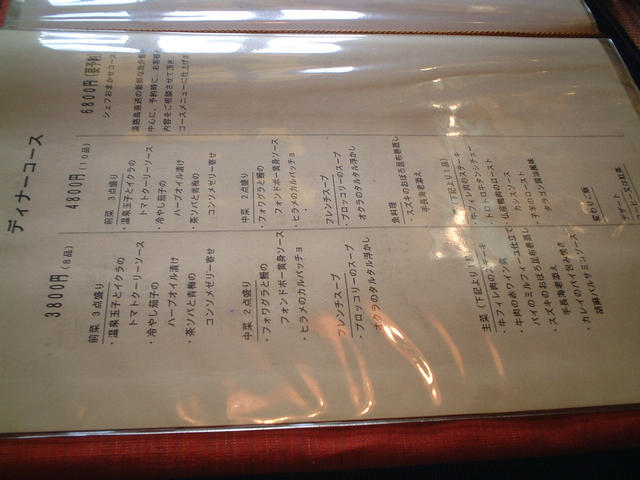 ディナーコース
3800円(8品)
前菜 3点盛り
・温泉玉子とイクラの
トマトクーリーソース
・冷やし茄子の
ハーブオイル漬け
・茶ソバと青梅の
コンソメゼリー寄せ
中菜 2点盛り
・フォワグラと鰻の
フォンドボー黄身ソース
・ヒラメのカルパッチョ
フレンチスープ
・ブロッコリーのスープ
オクラのタルタル浮かし
主菜(下記より1品)
・牛フィレ肉のステーキ
・牛肉の赤ワイン煮
パイのミルフィーユ仕立て
・スズキのおぼろ昆布巻蒸し
手長海老添え
・カレイのパイ包み焼き
胡麻バルサミコソース
4800円(10品)
前菜 3点盛り
・温泉玉子とイクラの
トマトクーリーソース
・冷やし茄子の
ハーブオイル漬け
・茶ソバと青梅の
コンソメゼリー寄せ
中菜 2点盛り
・フォワグラと鰻の
フォンドボー黄身ソース
・ヒラメのカルパッチョ
フレンチスープ
・ブロッコリーのスープ
オクラのタルタル浮かし
魚料理
・スズキのおぼろ昆布巻蒸し
手長海老添え
(下記より1品)
・牛フィレ肉のステーキ
・トロトロ牛タンシチュー
・仏産鴨肉のロースト
カシスソース
・子羊のロースト
タラゴン醤油風味
変わりご飯
デザート
6800円(要予約)
シェフおまかせコース
淡路島直送の新鮮な魚介類を
中心に、予約時に、お客様
内容をご相談させて頂き、
コースメニューに仕上げま